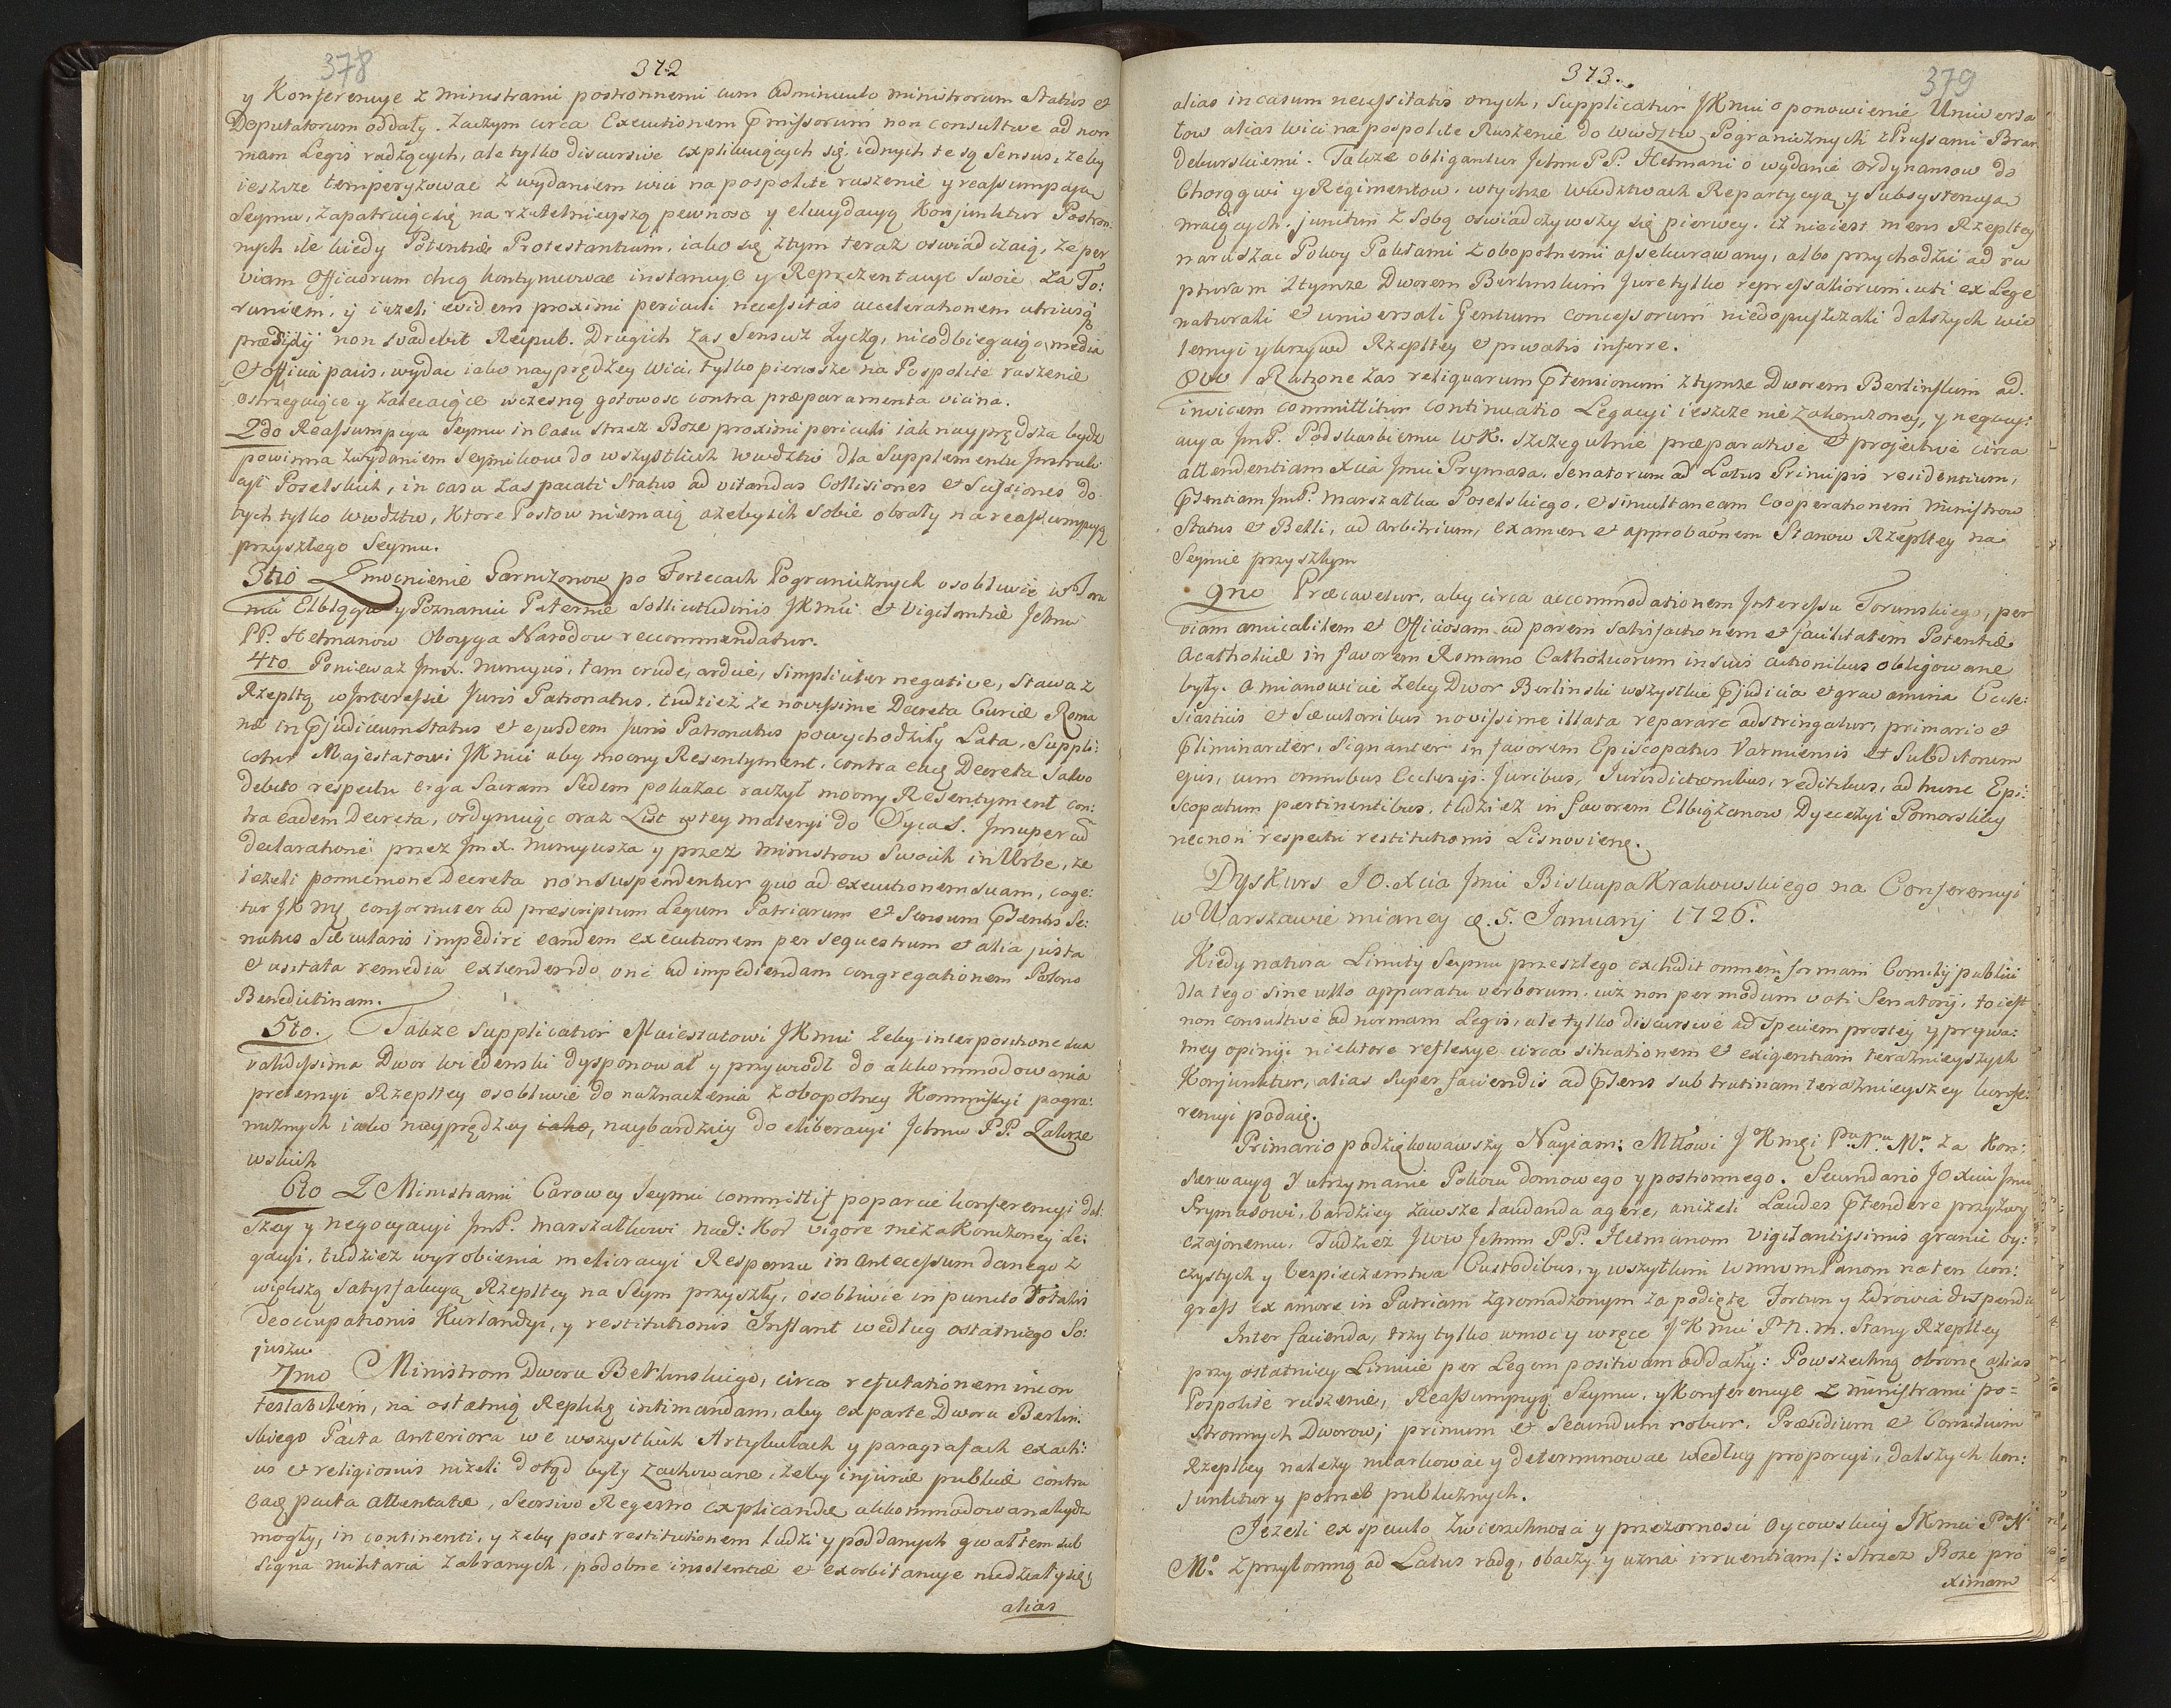 378
372
y Konferencye z Ministrami postronnemi cum adminiculo Ministrorum Status et
Deputatorum oddały. Zaczym circa Executionem p̄missorum non consultive ad nor
mam Legis radzących, ale tylko discursive explikuiących się, iednych te są Sensus, żeby
ieszcze temperyzować z wydaniem wici na pospolite ruszenie y reassumpcyą
Seymu, zapatruiąc się na rzetelnieyszą pewność y elucydacyą Konjunktur Postron:
nych ile kiedy Potentiæ Protestantium, iako się z tym teraz oświadczaią, że per
viam Officiorum chcą kontynuować instancye y Reprezentacye swoie za To:
runiem, y ieżeli evidens proximi periculi necessitas accelerationem utriusq
præsidij non svadebit Reipub. Drugich zas Sensus życzą, nie odbiegaiąc media
et officia pacis, wydać iako nayprędzey Wici, tylko pierwsze na Pospolite ruszenie
ostrzegaiące y zalecaiące wczesną gotowość contra præparamenta vicina.
2do Reassumpcya Seymu in Casu strzeż Boże proximi periculi iak nayprędsza bydź
powinna z wydaniem Seymikow do wszystkich Wwdztw dla Supplementu Instruk
cyi Poselskich, in casu zas pacati Status ad vitandas Collisiones et Scissiones do
tych tylko Wwdztw, ktore Posłow niemaią ażeby ich sobie obrały na reassumpcyą
przyszłego Seymu.
3tio Zmocnienie Garnizonow po Fortecach Pogranicznych osobliwie w Toru
niu Elblągu y Poznaniu Paternæ Sollicitudinis JKMci et Vigilantiæ Jchmw
PP. Hetmanow Oboyga Narodow reccommendatur.
4to Ponieważ Jmx. Nuncyusz, tam crude, ardue, simpliciter negative, stawa z
Rzepltą w Interessie Juris Patronatus, tudzież że novissime Decreta Curiæ Roma
næ in p̄judicium Status et ejusdem Juris Patronatus powychodziły Lata, Suppli:
catur Majestatowi JKMci aby mocny Resentyment, contra ea Decreta Salvo
debito respectu erga Sacram Sedem pokazać raczył mocny Resentyment con:
tra eadem Decreta, ordynuiąc oraz List w tey materyi do Oyca S. Insuper ad
declaratione przez Jmx. Nuncyusza y przez Ministrow Swoich in Urbe, że
ieżeli pomienione Decreta non suspendentur quo ad executionem suam, coge:
tur JK Mć conformiter ad prescriptum Legum Patriarum et Sensum p̄sentis Se:
natus Sæcularis impedire eandem executionem per sequestrum et alia justa
et usitata remedia extendendo one ad impediendam congregationem Polono
Benedictinam.
5to. Także supplicatur Maiestatowi JKMci żeby interpositione sua
validissima Dwor Wiedenski dysponował y przywiodł do akkommodowania
pretensyi Rzepltey osobliwie do naznaczenia z obopolney Kommissyi pogra:
nicznych iako nayprędzey iako, naybardziey do eliberacyi Jchmw PP. Zakrze
wskich
6to Z Ministrami Carowey Jeymci committit poparcie konferencyi dal:
szey y negocyacyi JmP. Marszałkowi Nad: Kor vigore niezakonczoney Le:
gacyi, tudzież wyrobienia melioracyi Responsu in antecessum danego z
większą satysfakcyą Rzepltey na Seym przyszły, osobliwie in puncto totalis
deoccupationis Kurlandyi, y restitutionis Inflant według ostatniego So:
juszu.
7mo Ministrom Dworu Berlinskiego, circa refutationem incon
testabilem, na ostatnią Replikę intimandam, aby ex parte Dworu Berlin:
skiego Pacta anteriora we wszystkich Artykułach y paragrafach exacti:
us et religiosius niżeli dotąd były zachowane, żeby injuriæ publicæ contra
eadem pacta attentatæ, Seorsivo Regestro explicandæ akkommodowane bydź
mogły, in continenti, y żeby post restitutionem ludzi y poddanych gwałtem sub
signa militaria zabranych, podobne insolentiæ et exorbitancye niedziały się
alias
373.
379
alias in casum necessitatis onych, Supplicatur JKMci o ponowienie Uniwersa
łow alias wici na pospolite Ruszenie do Wwdztw Pogranicznych z Prussami Bran
deburskiemi. Także obligantur Jchm PP. Hetmani o wydanie Ordynansow do
Chorągwi y Regimentow, w tychże Wwdztwach Repartycyą y subsystencyą
maiących, junctim z sobą oświadczywszy się pierwey, iż nieiest mens Rzepltey
naruszać Pokoy Paktami z obopolnemi assekurowany, albo przychodzić ad ru
pturam z tymże Dworem Berlinskim Jure tylko repressaliorum uti ex Lege
naturali et universali Gentium concessorum niedopuszczali dalszych wio
lencyi y krzywd Rzepltey et privatis inferre.
8vo Ratione zas reliquarum p̄tensionum z tymże Dworem Berlinskim ad.
invicem committitur continuatio Legacyi ieszcze nie zakonczoney, y negocy:
acya JmP. Podskarbiemu WK. szczegulnie præparative et projective circa
attendentiam Xcia Jmci Prymasa, Senatorum ad Latus Principis residentium,
p̄sentiam JmP. Marszałka Poselskiego, et simultaneam Cooperationem Ministrow
Status et Belli, ad arbitrium, examen et approbao̅nem Stanow Rzepltey na
Seymie przyszłym
9no Præcavetur, aby circa accommodationem Interessu Torunskiego, per
viam amicabilem et Officiosam ad parem satisfactionem et facilitatem Potentiæ
Acatholicæ in favorem Romano Catholicorum in suis ditionibus obligowane
były. A mianowicie żeby Dwor Berlinski wszystkie p̄judicia et gravamina Eccle:
siasticis et Sæcularibus novissime illata reparare adstringatur, primario et
p̄liminariter, signanter in favorem Episcopatus Varmiensis et Subditorum
ejus, cum omnibus Ecclesijs: Juribus, Jurisdictionibus, reditibus, ad hunc Epi:
scopatum pertinentibus, tudzież in favorem Elbiążanow Dyecezyi Pomorskiey
necnon respectu restitutionis Lisnoviene.
Dyskurs JO. Xcia Jmci Biskupa Krakowskiego na Conferencyi
w Warszawie mianey d. 5. Januarij 1726.
Kiedy natura Limity Seymu przeszłego excludit omnem formam Comitij publici
dla tego sine ullo apparatu verborum, iuż non per modum voti Senatorij, to iest
non consultive ad normam Legis, ale tylko discursive ad speciem prostey y prywa:
tney opinij niektore reflexye circa situationem et exigentiam teraźnieyszych
Konjunktur, alias super faciendis ad p̄sens sub trutinam teraźnieyszey konfe:
rencyi podaię.
Primario podziękowawszy Nayiaśn: Mttowi J K mci Pu Nu Mu za kon:
serwacyą y utrzymanie Pokoiu domowego y postronnego. Secundario JO Xciu Jmci
Prymasowi, bardziey zawsze laudanda agere, aniżeli Laudes p̄tendere przyzwy
czajonemu. Tudzież Jww Jchmm PP. Hetmanom vigilantissimis granic oy:
czystych y bezpieczenstwa Custodibus, y wszytkim Wmwm Panom na ten kon:
gress ex amore in Patriam zgromadzonym za podięte Fortun y zdrowia dispendia
Inter facienda, trzy tylko w moc y w ręce JK mci P. N. M. Stany Rzepltey
przy ostatniey Limicie per Legem positivam oddały: Powszechną obronę alias
Pospolite ruszenie, Reassumpcyą Seymu, y Konferencye z Ministrami po=
stronnych Dworow; primum et Secundum robur, Præsidium et Consilium
Rzepltey należy miarkować y determinować według proporcyi, dalszych kon:
junktur y potrzeb publicznych.
Jeżeli ex speculo zwierzchności y przezorności Oycowskiey JKmci Pa Na
Mo z przytomną ad Latus radą, obaczy y uzna irruentiam /: strzeż Boże pro
ximam